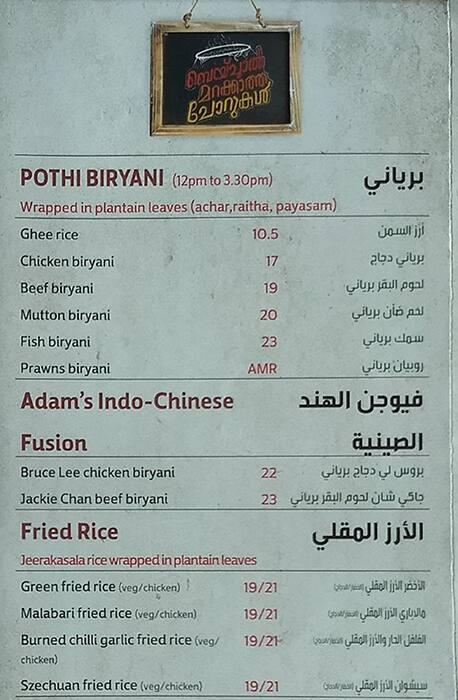 ബെയ്ച്ചാൽ
മറക്കാത്ത
ചോറുകൾ
POTHI BIRYANI (12pm to 3.30pm) برياني
Wrapped in plantain leaves (achar,raitha, payasam)
Ghee rice 10.5 أرز السمن
Chicken biryani 17 برياني دجاج
Beef biryani 19 لحوم البقر برياني
Mutton biryani 20 لحم ضأن برياني
Fish biryani 23 سمك برياني
Prawns biryani AMR روبيان برياني
Adam's Indo-Chinese فيوجن الهند
Fusion الصينية
Bruce Lee chicken biryani 22 بروس لي دجاج برياني
Jackie Chan beef biryani 23 جاكي شان لحوم البقر برياني
Fried Rice الأرز المقلي
Jeerakasala rice wrapped in plantain leaves
Green fried rice (veg/chicken) 19/21 الأخضر الأرز المقلي (الخضار/الدجاج)
Malabari fried rice (veg/chicken) 19/21 مالاباري الأرز المقلي (الخضار/الدجاج)
Burned chilli garlic fried rice (veg/ 19/21 الفلفل الحار والأرز المقلي (الخضار/الدجاج)
chicken)
Szechuan fried rice (veg/chicken) 19/21 سيشوان الأرز المقلي (الخضار/الدجاج)